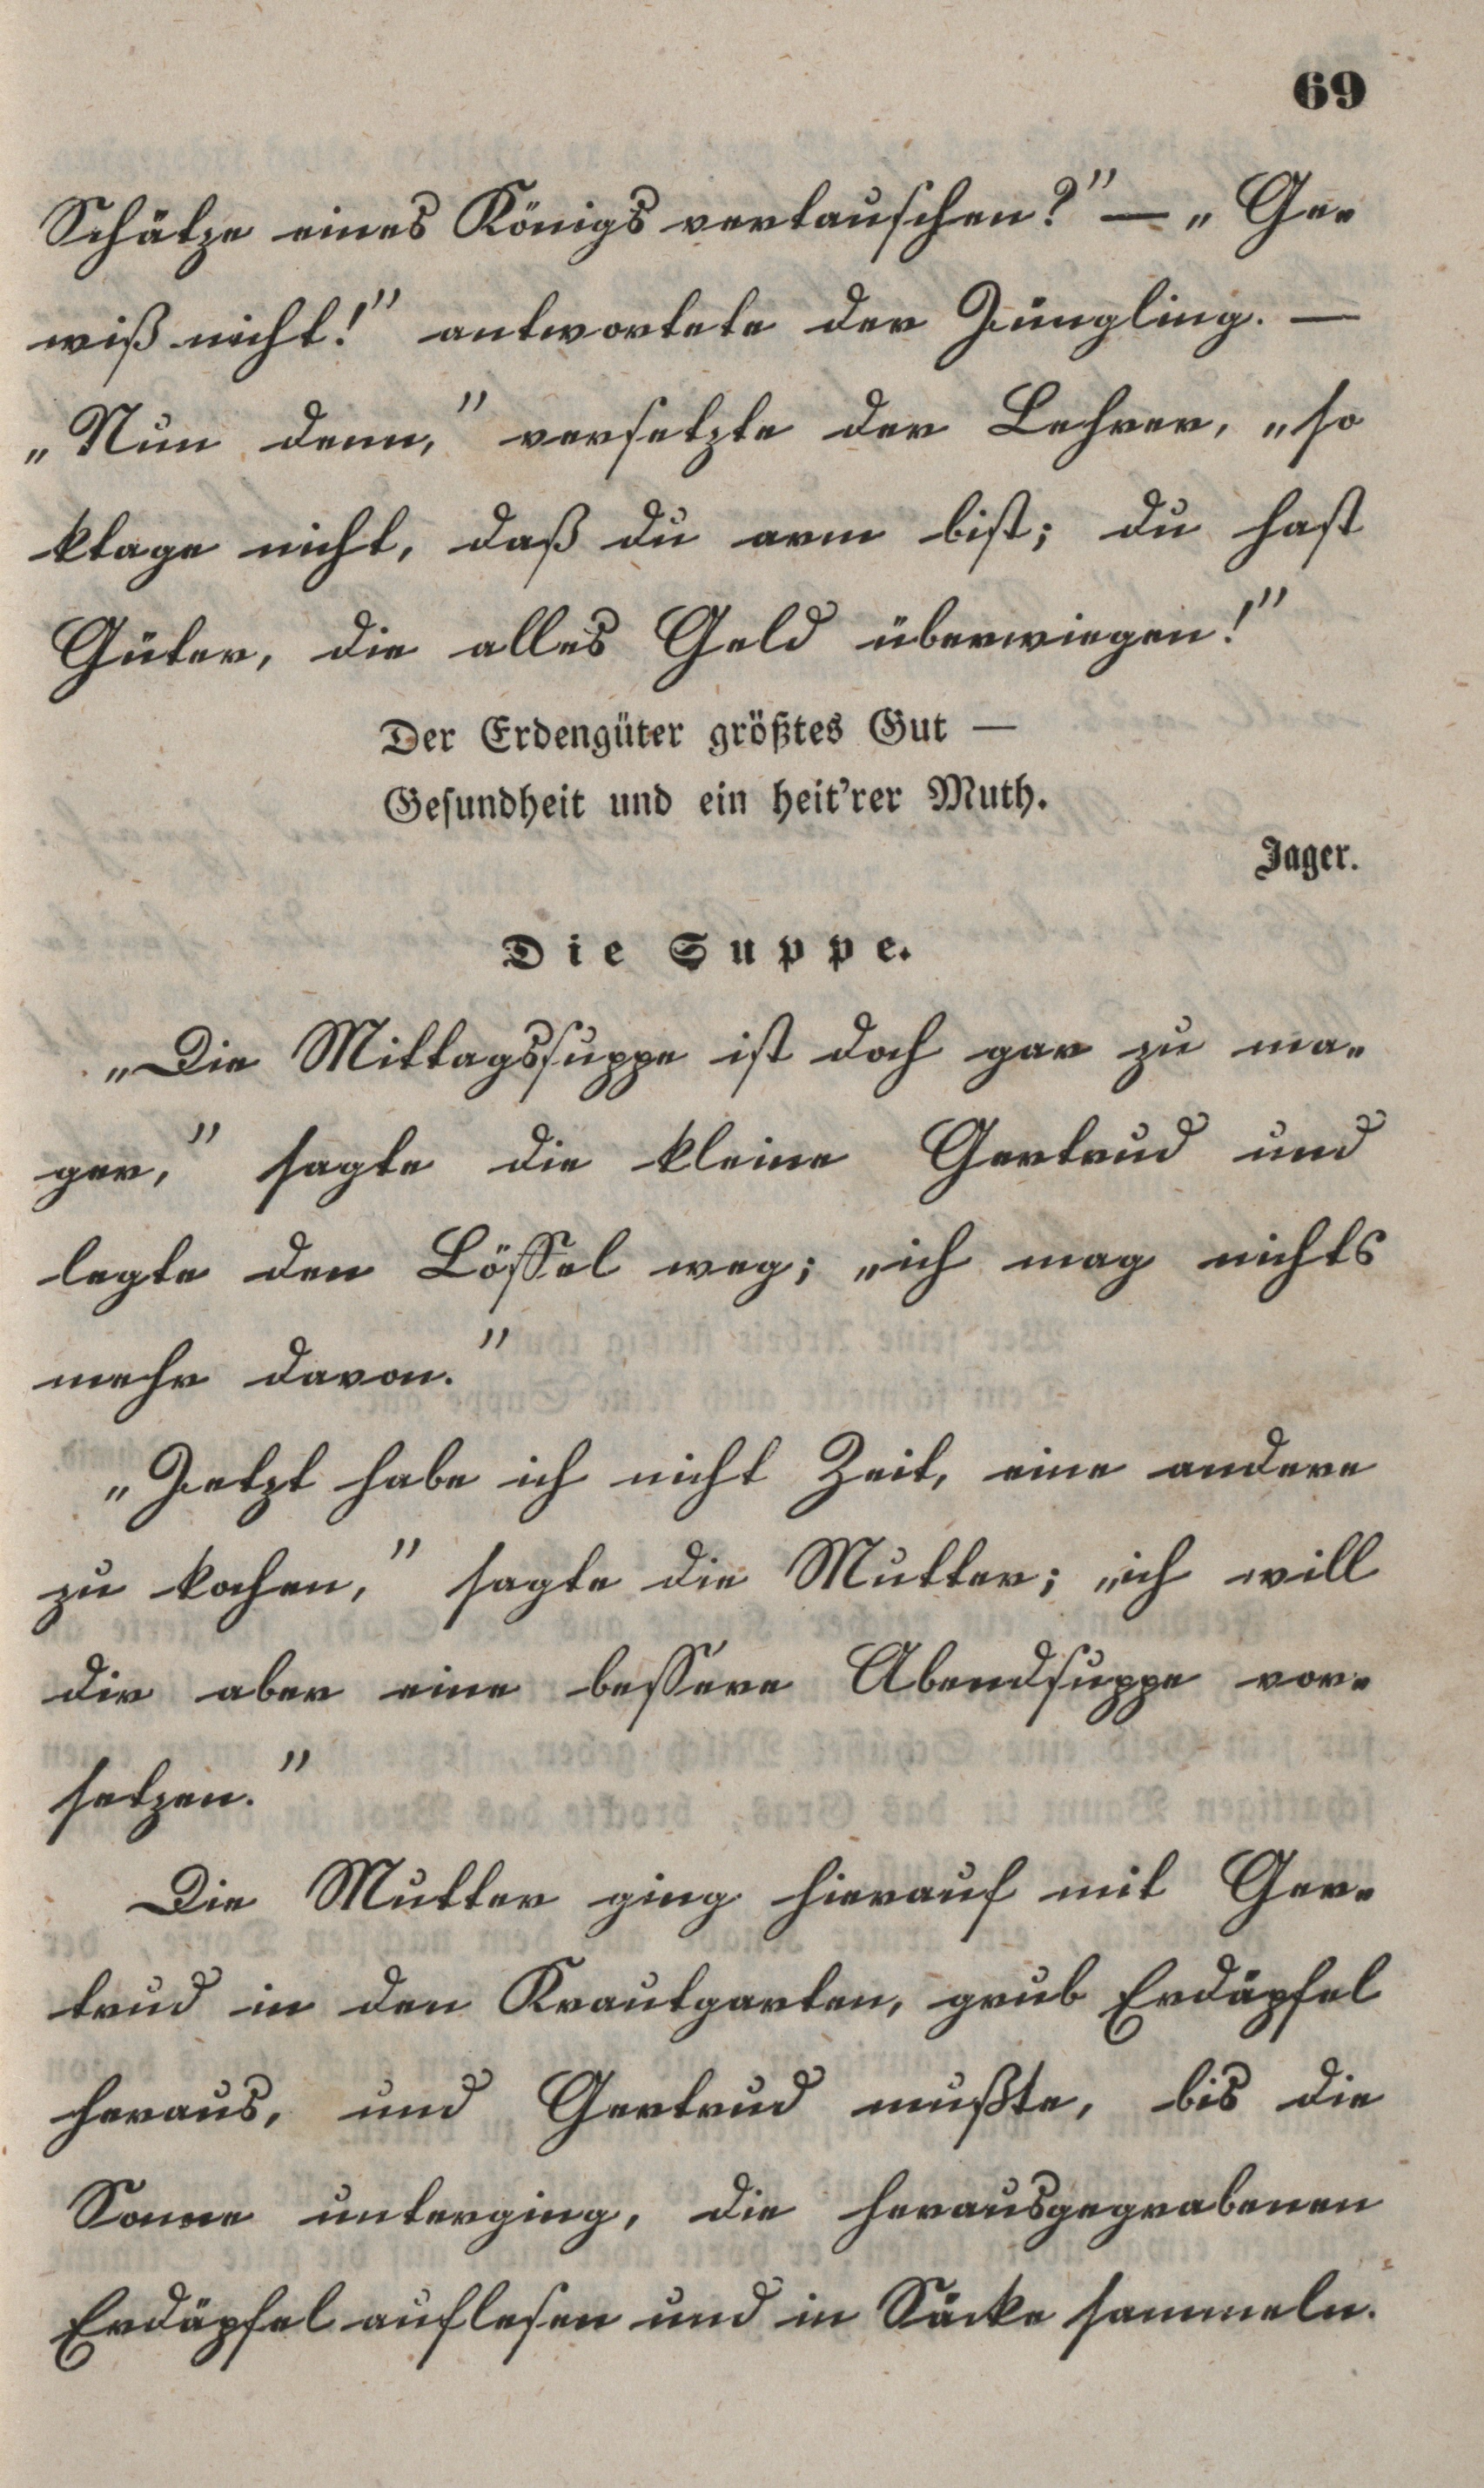 69
Schätze eines Königs vertauschen?” — „Ge-
wiß nicht!” antwortete der Jüngling. —
„Nun denn,” versetzte der Lehrer, „so
klage nicht, daß du arm bist; du hast
Güter, die alles Geld überwiegen!”
Der Erdengüter größtes Gut —
Gesundheit und ein heit’rer Muth.
Jager.
Die Suppe.
„Die Mittagssuppe ist doch gar zu ma-
ger,” sagte die kleine Gertrud und
legte den Löffel weg; „ich mag nichts
mehr davon.”
„Jetzt habe ich nicht Zeit, eine andere
zu kochen,” sagte die Mutter; „ich will
dir aber eine bessere Abendsuppe vor-
setzen.”
Die Mutter ging hierauf mit Ger-
trud in den Krautgarten, grub Erdäpfel
heraus, und Gertrud mußte, bis die
Sonne unterging, die herausgegrabenen
Erdäpfel auflesen und in Säcke sammeln.